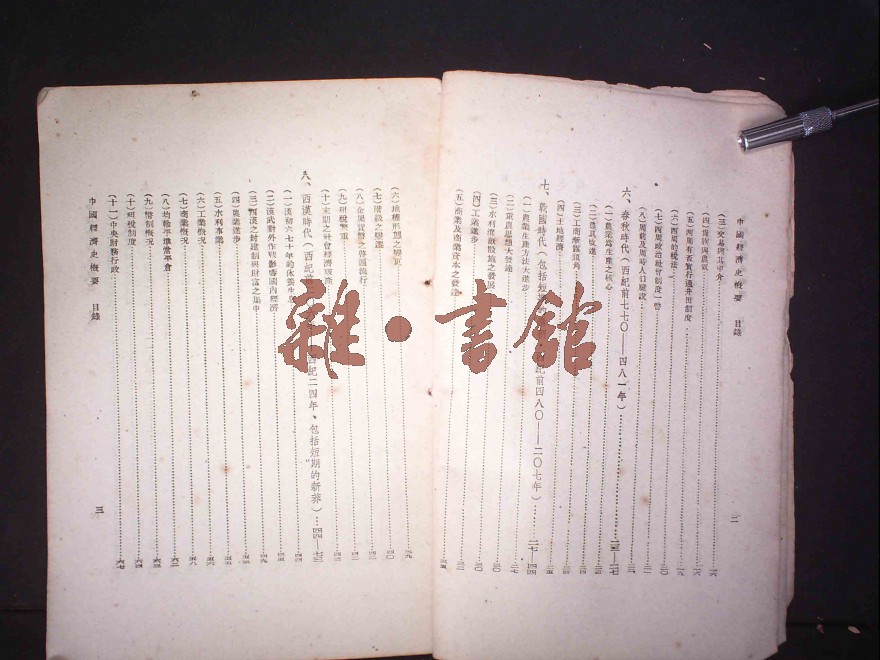 中國經濟史概要 目錄
二
(三)交易與其中介
(四)貴族與農奴
(五)西周有否實行過井田制度
(六)西周的稅法
(七)西周政治社會制度一瞥
(八)周前及周時人口總說
六、春秋時代(西紀前七七〇——四八一年)
(一)農業為生產之核心
(二)農具改進
(三)工商漸露頭角
(四)土地經濟
七、戰國時代(包括短 紀前四八〇——二〇七年) 二七 四四
(一)農業生產方法大進步 二七
(二)重農思想大發達
(三)水利灌溉設施之發展 三〇
(四)工業進步 三〇
(五)商業及商業資本之發達 三二
(六)地權形態之變更 四〇
(七)階級之變遷
(八)金屬貨幣之發達流行 四二
(九)租稅繁重
(十)末期之社會經濟
八、西漢時代(西紀前 西紀二四年、包括短期的新莽) 四四—七三
(一)漢初六七十年的休養生息 四四
(二)漢武對外作戰影響國內經濟
(三)西漢之封建制與財富之集中 四九
(四)農業進步
(五)水利事業
(六)工業概況
(七)商業概況 五八
(八)均輸平準常平倉
(九)幣制概況
(十)租稅制度
(十一)中央財務行政 六七
中國經濟史概要 目錄
三
雜·書館